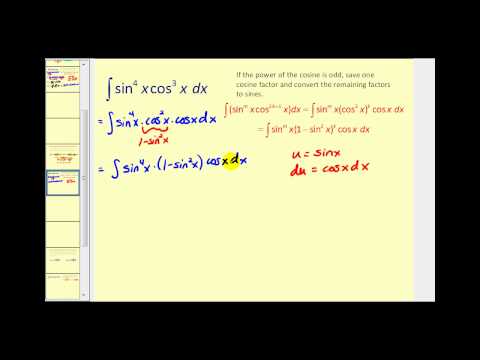 ∫ sin⁴ x cos³ x dx
= ∫ sin⁴x · cos²x · cosx dx
1-sin²x
= ∫ sin⁴x · (1-sin²x) cosx dx
If the power of the cosine is odd, save one
cosine factor and convert the remaining factors
to sines.
∫(sinᵐ x cos²ᵏ⁺¹ x)dx = ∫ sinᵐ x(cos² x)ᵏ cos x dx
= ∫ sinᵐ x(1 − sin² x)ᵏ cos x dx
u = sinx
du = cosx dx